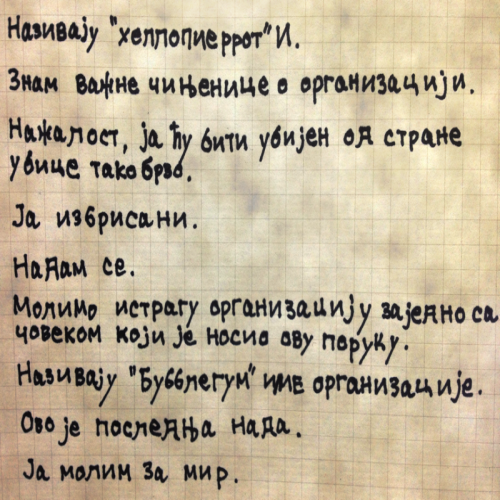 Називају "хеллопиеррот" И.
Знам важне чињенице о организацији.
Нажалост, ја ћу бити убијен од стране
убице тако брзо.
Ја избрисани.
Надам се.
Молимо истрагу организацију заједно са
човеком који је носио ову поруку.
Називају "Бубблегум" име организације.
Ово је последња нада.
Ја молим за мир.